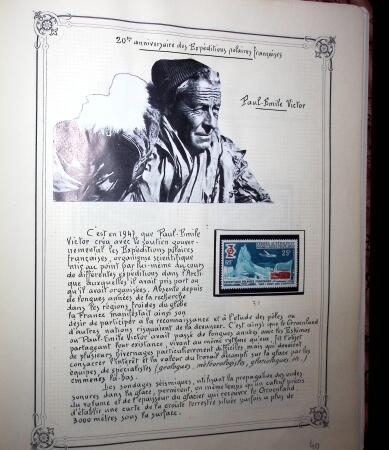 20ème anniversaire des Expéditions polaires françaises
Paul-Emile Victor
C'est en 1947, que Paul-Emile
Victor créa avec le soutien gouver-
nemental les Expéditions polaires
françaises, organisme scientifique
mis au point par lui-même au cours
de différentes expéditions dans l'Arcti-
que auxquelles il avait pris part ou
qu'il avait organisées. Absente depuis
de longues années de la recherche
dans les régions froides du globe
la France manifestait ainsi son
désir de participer à la reconnaissance et à l'étude des pôles où
d'autres nations risquaient de la devancer. C'est ainsi que le Groenland
où Paul-Emile Victor avait passé de longues années avec les Eskimos
partageant leur existence, vivant au même rythme qu'eux, fit l'objet
de plusieurs hivernages particulièrement difficiles mais qui devaient
consacrer l'intérêt et la valeur du travail accompli sur la glace par les
équipes de spécialistes (géologues, météorologistes, glaciologues etc.)
emmenés là-bas.
Des sondages séismiques, utilisant la propagation des ondes
sonores dans la glace, permirent, en même temps qu'un calcul précis
du volume et de l'épaisseur du glacier qui recouvre le Groenland,
d'établir une carte de la croûte terrestre située parfois à plus de
3000 mètres sous la surface.
25F
31
40